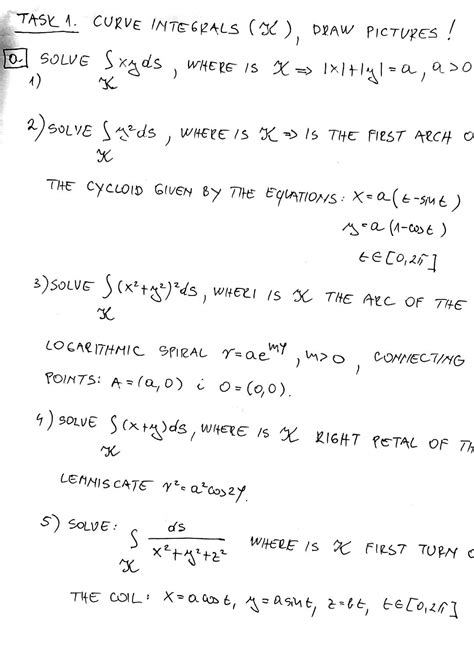 TASK 1. CURVE INTEGRALS (K), DRAW PICTURES!
a SOLVE ∫xyds, WHERE IS K ⇒ |x|+|y|=a, a>0
1) K
2) SOLVE ∫y²ds, WHERE IS K ⇒ IS THE FIRST ARCH
K
THE CYCLOID GIVEN BY THE EQUATIONS: x=a(t-sint)
y=a(1-cost)
t∈[0,2π]
3) SOLVE ∫(x²+y²)²ds, WHERI IS K THE ARC OF THE
K
LOGARITHMIC SPIRAL r=ae^{mφ}, m>0, CONNECTING
POINTS: A=(a,0) i O=(0,0).
4) SOLVE ∫(x+y)ds, WHERE IS K RIGHT PETAL OF
K
LEMNISCATE r²=a²cos2φ.
5) SOLVE: ∫ ds/(x²+y²+z²) WHERE IS K FIRST TURN
K
THE COIL: x=acost, y=asint, z=bt, t∈[0,2π]